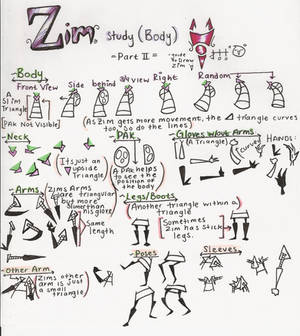 Zim study (Body)
-Part II=
-guide to Draw Zim
-Body
Front View
Side
behind
3/4 view
Right
Random
A Slim Triangle
[PAK Not Visible]
(As Zim gets more movement, the △ triangle curves too. So do the lines)
-Neck
(It's just an upside Triangle)
-PAK
(A PAK helps to see the position of the body)
-Gloves W/out Arms
(A Triangle)
(Curves)
HANDS:
-Arms
Zims Arms are triangular but more Number than his glove.
Same length
-Legs/Boots
(Another triangle within a triangle
Sometimes Zim has Stick legs.
-Other Arm
(Zims other arm is just a small triangle)
-Poses
Sleeves